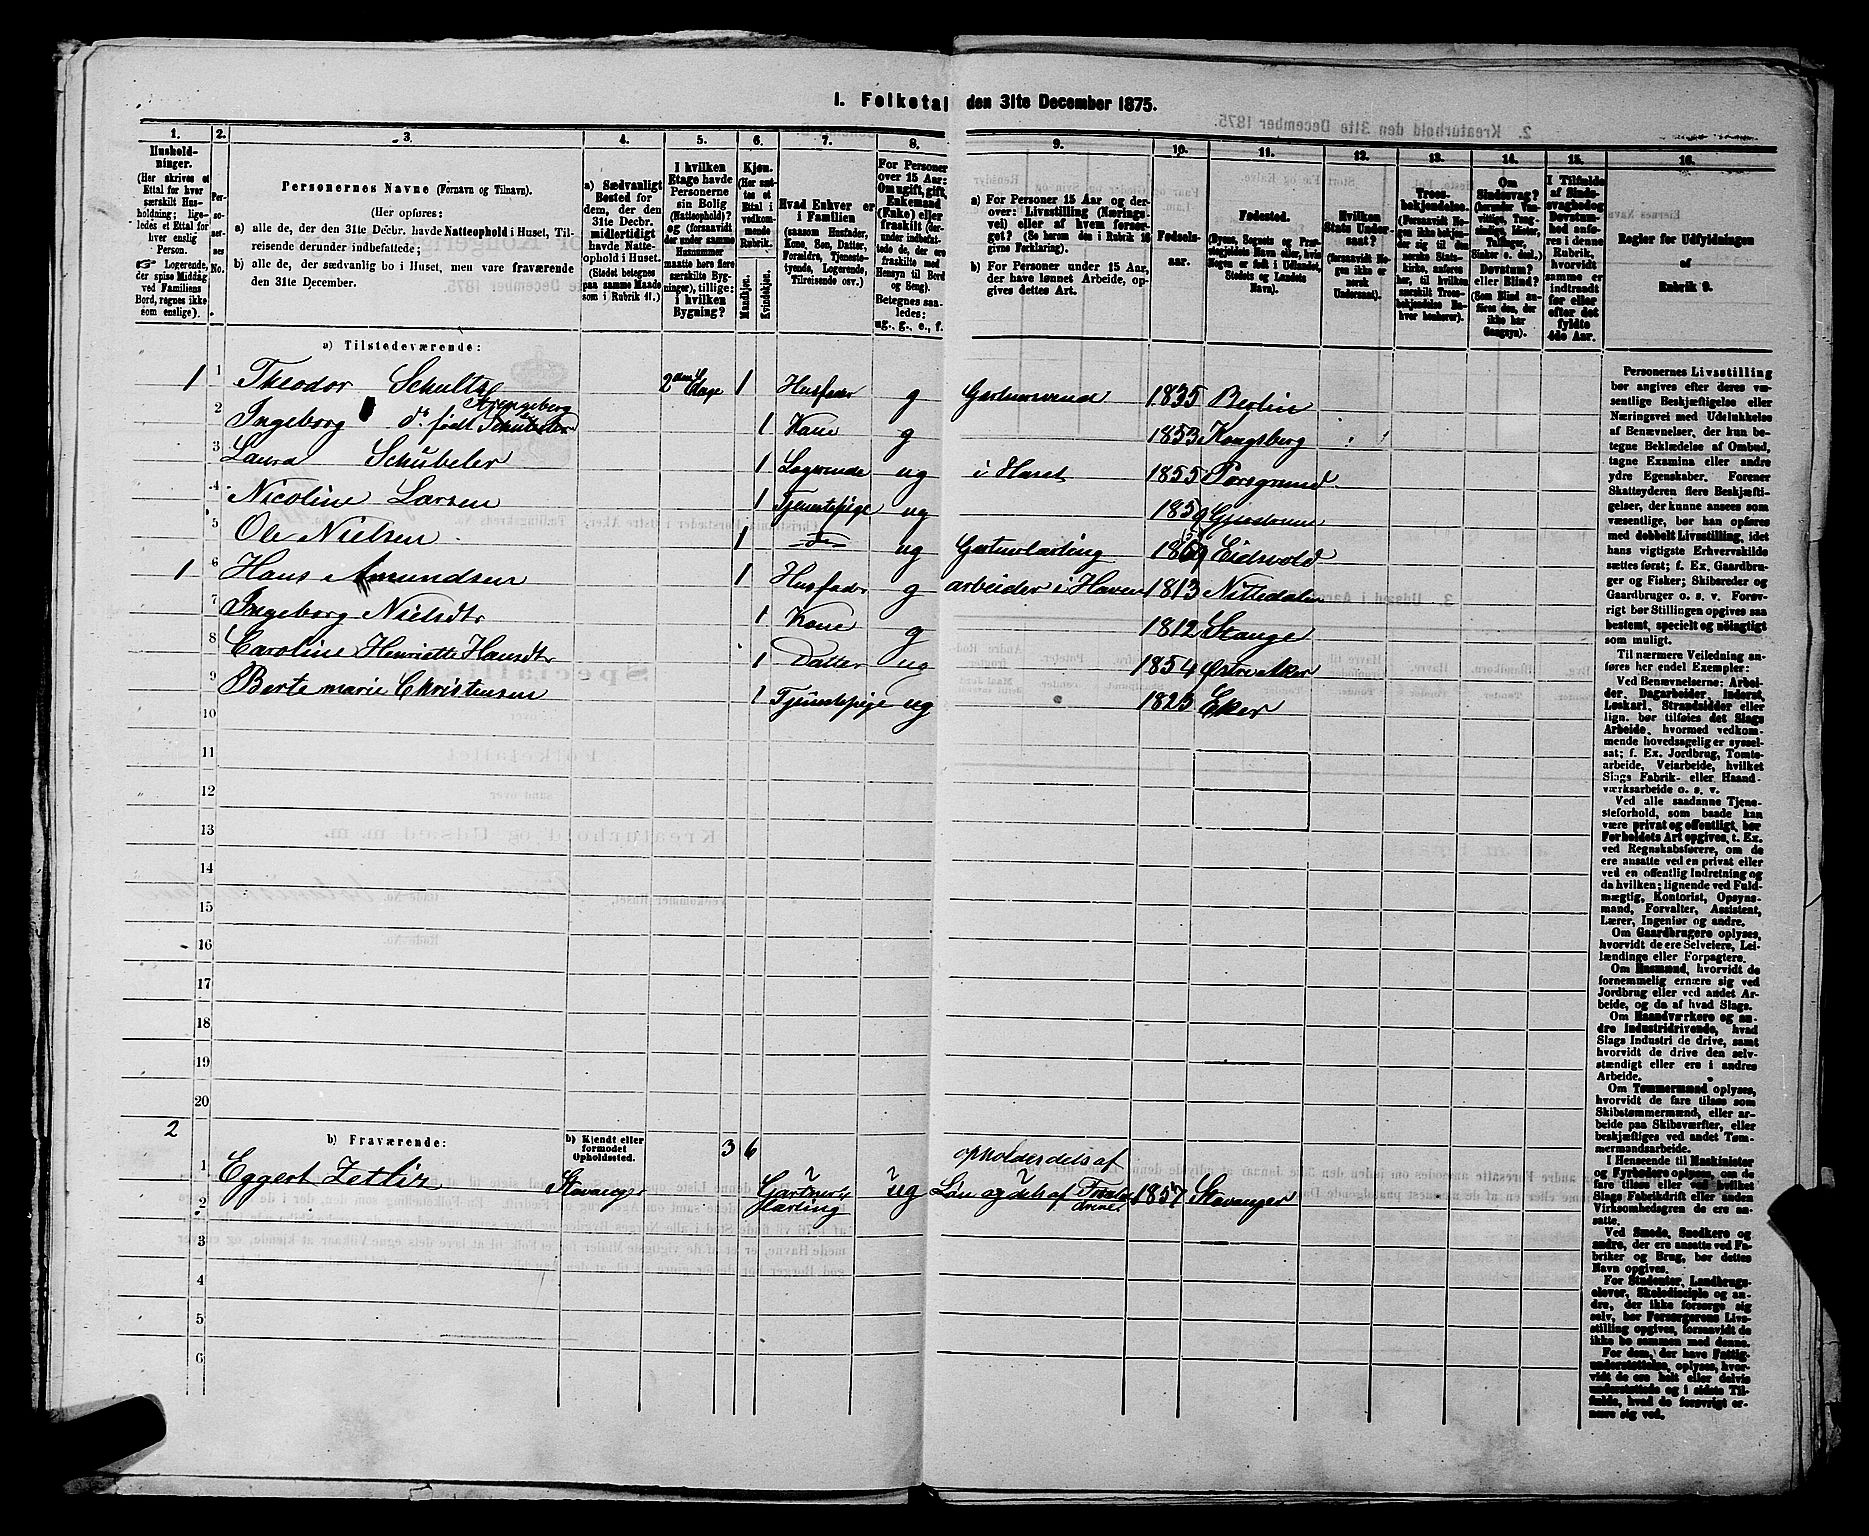 1. Folketal den 31te December 1875.
1.
Hushold-
ninger.
(Her skrives et
Ettal for hver
særskilt Hus-
holdning; lige-
ledes et Ettal for
hver enslig
Person.
Logerende,
der spise Middag
ved Familiens
Bord, regnes ikke
som enslige).
2.
Per-
so-
ner-
nes
No.
3.
Personernes Navne (Fornavn og Tilnavn).
(Her opføres:
a) alle de, der den 31te Decbr. havde Natteophold i Huset, Til-
reisende derunder indbefattede;
b) alle de, der sædvanlig bo i Huset, men vare fraværende
den 31te December.
4.
a) Sædvanligt
Bosted for
dem, der den
31te Decbr.
midlertidigt
havde Natte-
ophold i Huset.
(Stedet betegnes
paa samme Maade
som i Rubrik 11.)
5.
I hvilken
Etage havde
Personerne
sin Bolig
(Natteophold)?
og (forsaavidt
der under samme
Husnummer
maatte høre flere
særskilte Byg-
ninger), tillige:
i hvilken
Bygning?
6.
Kjøn.
(Her sæt-
tes et
Ettal i
vedkom-
mende
Rubrik.
Mandkjøn.
Kvindekjøn.
7.
Hvad Enhver er
i Familien
(saasom Husfader,
Kone, Søn, Datter,
Forældre, Tjeneste-
tyende, Logerende,
Tilreisende osv.)
8.
For Personer
over 15 Aar:
Om ugift, gift,
Enkemand
(Enke) eller
fraskilt
Betegnes saa-
ledes:
ug., g., e., f.
9.
a) For Personer 15 Aar og der-
over: Livsstilling (Nærings-
vei) eller af hvem forsør-
get? (Se herom den i Rubrik 16
givne Forklaring).
b) For Personer under 15 Aar,
der have lønnet Arbeide, op-
gives dettes Art.
10.
Fødsels-
aar.
11.
Fødested.
(Byens, Sognets og Præ-
stegjeldets Navn eller, hvis
Nogen er født i Udlandet,
Stedets og Landets
Navn).
12.
Hvilken
Stats Under-
saat?
(forsaavidt No-
gen ikke er
norsk
Undersaat).
13.
Troes-
bekjendelse.
(Forsaavidt No-
gen ikke beken-
der sig til den
norske Stats-
kirke, anføres
her, til hvilken
særskilt Troes-
bekjendelse En-
hver henhører).
14.
Om
Sindssvag?
Døvstum?
eller Blind?
(Som Blind an-
føres den, der
ikke har
Gangsyn).
15.
I Tilfælde
af Sinds-
svaghed og
Døvstum-
hed anfø-
res i denne
Rubrik,
hvorvidt
samme er
indtraadt
før eller
efter det
fyldte
4de Aar.
16.
Regler for Udfyldningen
af
Rubrik 9.
a) Tilstedeværende:
1 1 Theodor Schultz 2den Etage 1 Husfader g Gartnersvend 1835 Berlin
2 Ingeborg do født Schübeler 1 Kone g 1853 Kongsberg
3 Laura Schübeler 1 Logerende ug i Huset 1855 Porsgrund
4 Nicoline Larsen 1 Tjenestepige ug
5 Ole Nielsen 1 do ug Gartnerlærling Eidsvold
1 6 Hans Amundsen 1 Husfader g arbeider i Haven 1813 Nittedalen
7 Ingeborg Nielsdtr 1 Kone g 1812 Stange
8 Caroline Henriette Hansdtr 1 Datter ug 1854 Østre Aker
9 Berte marie Christensen 1 Tjenestepige ug 1823 Eker
10
11
12
13
14
15
16
17
18
19
20
2 3 6
b) Fraværende:
b) Kjendt eller
formodet
Opholdssted.
1 Eggert Zetlitz Stavanger Gartner Lærling ug opholder dels af
2 Løn og dels af 1857 Stavanger
3
4
5
6
Personernes Livsstilling
bør angives efter deres væ-
sentlige Beskjæftigelse eller
Næringsvei med Udelukkelse
af Benævnelser, der kun be-
tegne Beklædelse af Ombud,
tagne Examina eller andre
ydre Egenskaber. Forener
Skatteyderen flere Beskjæfti-
gelser, der kunne ansees som
væsentlige, bør han opføres
med dobbelt Livsstilling, idet
hans vigtigste Erhvervskilde
sættes først; f. Ex. Gaardbru-
ger og Fisker; Skibsreder og
Gaardbruger o. s. v. Forøv-
rigt bør Stillingen opgives saa
bestemt, specielt og nøiagtigt
som muligt.
Til nærmere Veiledning an-
føres her endel Exempler:
Ved Benævnelserne: Arbei-
der, Dagarbeider, Inderst,
Løskarl, Strandsidder eller
lign. bør tilføies det Slags
Arbeide, hvormed vedkom-
mende hovedsagelig er syssel-
sat; f. Ex. Jordbrug, Tomte-
arbeide, Veiarbeide, hvilket
Slags Fabrik- eller Haand-
værksarbeide o. s. v.
Ved alle saadanne Tjene-
steforhold, som baade kan
være privat og offentligt, bør
Forholdets Art opgives, t. Ex.
ved Regnskabsførere, om de
ere ansatte ved en privat eller
ved en offentlig Indretning og
da hvilken; lignende ved Fuld-
mægtig, Kontorist, Opsyns-
mand, Forvalter, Assistent,
Lærer, Ingeniør og andre.
Om Gaardbrugere oplyses,
hvorvidt de ere Selveiere, Lei-
lændinge eller Forpagtere.
Om Husmænd, hvorvidt de
fornemmelig ernære sig ved
Jordbrug eller ved andet Ar-
beide, og da af hvad Slags.
Om Haandværkere og an-
dre Industridrivende, hvad
Slags Industri de drive, samt
hvorvidt de drive den selv-
stændigt eller ere i andres
Arbeide.
Om Tømmermænd oplyses,
hvorvidt de fare tilsøs som
Skibstømmermænd, eller ar-
beide paa Skibsværfter, eller
beskjæftiges ved andet Tøm-
mermandsarbeide.
I Henseende til Maskinister
og Fyrbødere oplyses, om de
fare tilsøs eller ved hvilket
Slags Fabrikdrift eller anden
Virksomhedsgren de ere an-
satte.
Ved Smede, Snedkere og
andre, der ere ansatte ved Fa-
briker og Brug, bør dettes
Navn opgives.
For Studenter, Landbrugs-
elever, Skoledisciple og an-
dre, der ikke forsørge sig
selv, bør Forsørgerens Livs-
stilling opgives, forsaavidt de
ikke bo sammen med denne.
For dem, der have Fattig-
understøttelse, oplyses, hvor-
vidt de ere helt eller delvis
understøttede og i sidste Til-
fælde, hvad de forøvrigt er-
nære sig ved.